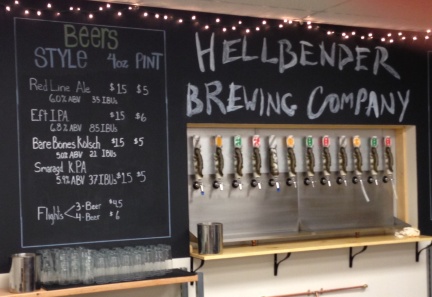 Beers
STYLE 4oz PINT
Red Line Ale $1.5 $5
6.0% ABV 35 IBUs
Eft I.P.A. $1.5 $6
6.8% ABV 85 IBUs
Bare Bones Kolsch $1.5 $5
5.0% ABV 21 IBUs
Smaragd K.P.A.
5.9% ABV 37 IBUs $1.5 $5
Flights 3-Beer $4.5
4-Beer $6
HELLBENDER
BREWING COMPANY